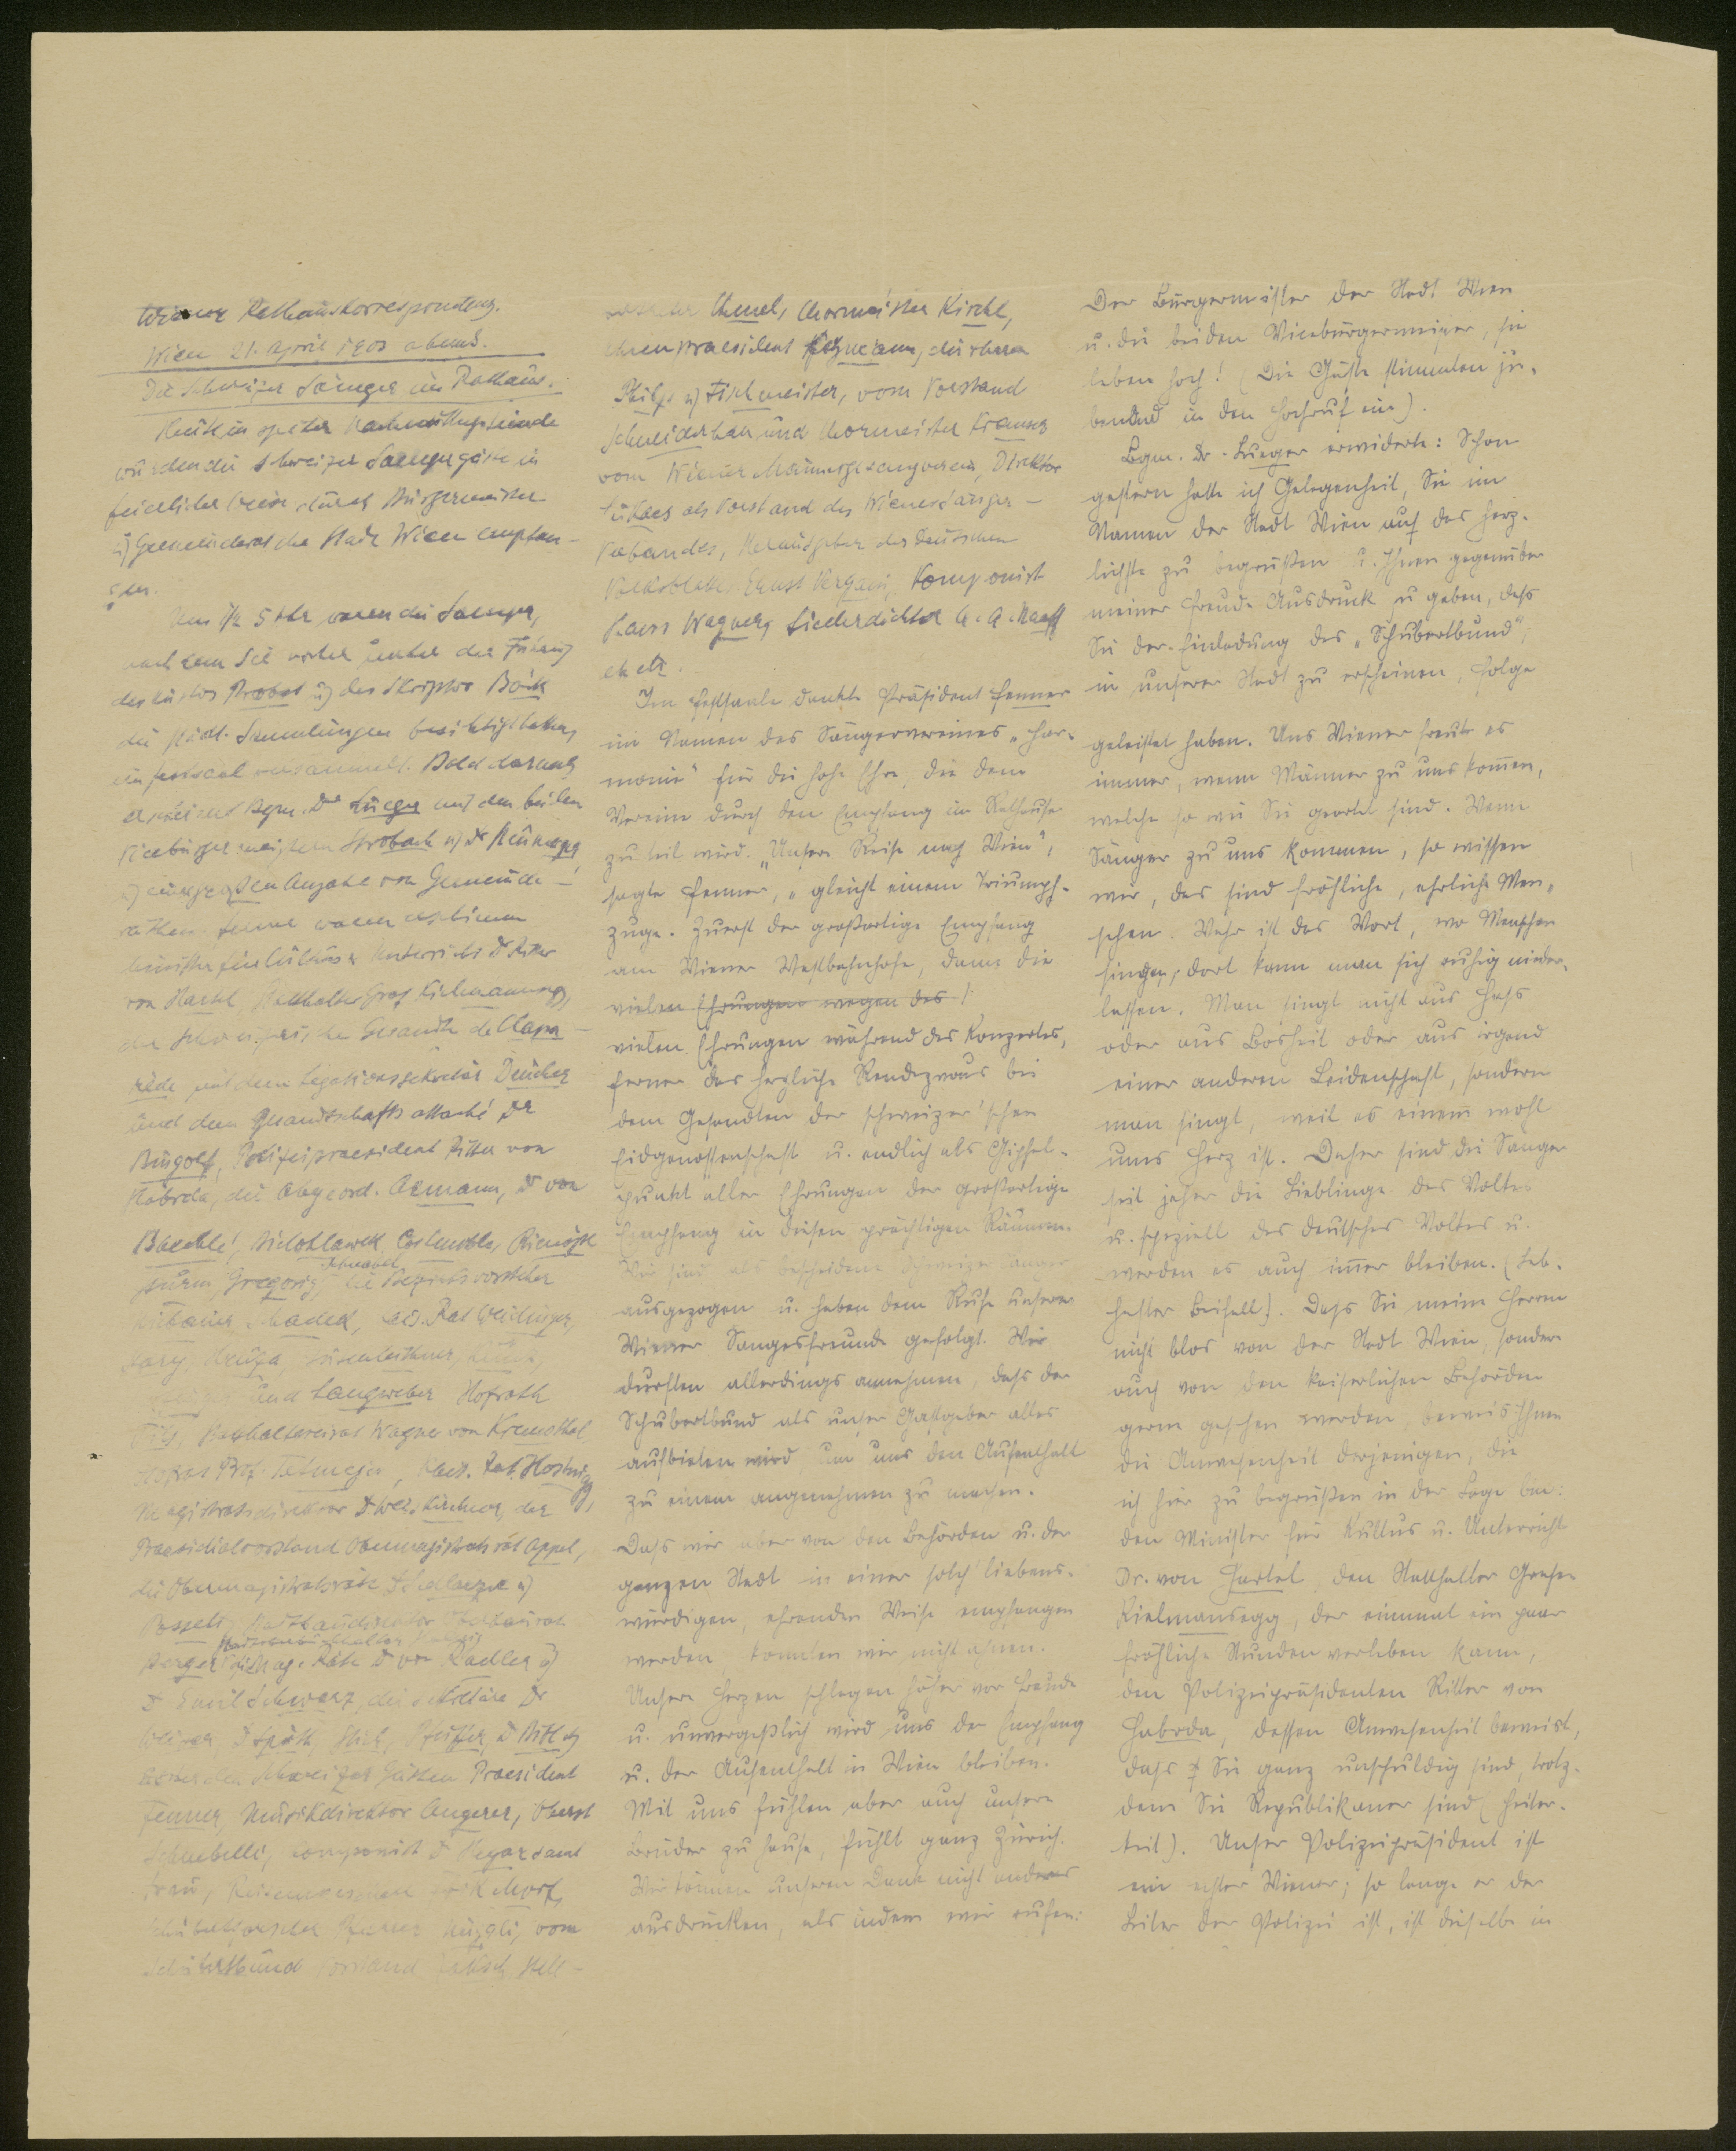 Wiener Rathauskorrespondenz.
Wien 21. April 1903 abends.
Die Schweizer Sänger im Rathaus.
Heute in später Nachmittagsstunde
wurden die Schweizer Saengergäste in
feierlicher Weise durch Bürgermeister
u) Gemeinderat der Stadt Wien empfan-
gen.
Um 1/2 5 Uhr waren die Saenger,
nachdem Sie vorher unter der Führung
des Kustos Probst u) des Skriptor Böck
die städt. Sammlungen besichtigt hatten,
im Festsaal versammelt. Bald darnach
erschienen Bgm. Dr Lueger mit den beiden
Vicebürgermeistern Strobach u) Dr Neumayer
u) einer großen Anzahl von Gemeinde-
räthen. Ferner waren erschienen
Minister für Kultus u Unterricht Dr Ritter
von Hartel, Statthalter Graf Kielmannsegg,
der schweizerische Gesandte de Clapa-
rède mit dem Legationssekretär Deucher
und dem Gesandtschaftsattaché Dr
Polizeipraesident Ritter von
Habrda, die Abgeord. Axmann, Dr von
Baechlé, Bielohlawek, Rienössl
Sturm, Gregorig, die Bezirksvorsteher
kais. Rat Weidinger,
und Langweber Hofrath
Statthaltereirat Wagner von Kremsthal
Hofrat Prof. Tetmajer, Kais. Rat
Magistratsdirektor Dr Weiskirchner, der
Praesidialvorstand Obermagistratsrat Appel,
die Obermagistratsräte Dr Sedlaczek u)
Stadtbaudirektor Oberbaurat
Berger die Mag. Räte Dr von Radler u)
Dr Emil Schwarz, die Sekretäre Dr
Pfeiffer, Dr
von den Schweizer Gästen Praesident
Fenner, Musikdirektor Angerer, Oberst
Schnebelli, Komponist Dr Hegar samt
Frau,
Pfarrer vom
Schubertbund Vorstand
Chormeister Kirchl,
Ehrenpraesident
u) Fischmeister, vom Vorstand
Schneiderhan und Chormeister Kremser
vom Wiener Männergesangverein, Direktor
als Vorstand des Wiener Sänger-
Verbandes, Herausgeber des Deutschen
Volksblattes Ernst Vergani, Komponist
Hans Wagner, Liederdichter A. A. Naaff
etc etc.
Im Festsaale dankte Präsident Fenner
im Namen des Sängervereines „Har-
monie" für die hohe Ehre, die dem
Vereine durch den Empfang im Rathause
zu teil wird. „Unsere Reise nach Wien",
sagte Fenner, „gleicht einem Triumph-
zuge. Zuerst der großartige Empfang
am Wiener Westbahnhofe, dann die
vielen Ehrungen wegen des
vielen Ehrungen während des Konzertes,
ferner das herzliche Rendezvous bei
dem Gesandten der schweizer'schen
Eidgenossenschaft u. endlich als Gipfel-
punkt aller Ehrungen der großartige
Empfang in diesen prächtigen Räumen.
Wir sind als bescheidene Schweizer Sänger
ausgezogen u. haben dem Rufe unserer
Wiener Sangesfreunde gefolgt. Wir
durften allerdings annehmen, dass der
Schubertbund als unser Gastgeber alles
aufbieten wird um uns den Aufenthalt
zu einem angenehmen zu machen.
Dass wir aber von den Behörden u. der
ganzen Stadt in einer solch' liebens-
würdigen, ehrenden Weise empfangen
werden, konnten wir nicht ahnen.
Unsere Herzen schlagen höher vor Freude
u. unvergeßlich wird uns der Empfang
u. der Aufenthalt in Wien bleiben.
Mit uns fühlen aber auch unsere
Brüder zu Hause, fühlt ganz Zürich.
Wir können unseren Dank nicht anders
ausdrücken, als indem wir rufen:
Der Bürgermeister der Stadt Wien
u. die beiden Vicebürgermeister, sie
leben hoch! (Die Gäste stimmten ju-
belnd in den Hochruf ein).
Bgm. Dr. Lueger erwiderte: Schon
gestern hatte ich Gelegenheit, Sie im
Namen der Stadt Wien auf das herz-
lichste zu begrüßen u. Ihnen gegenüber
meiner Freude Ausdruck zu geben, dass
Sie der Einladung des „Schubertbund",
in unserer Stadt zu erscheinen, Folge
geleistet haben. Uns Wiener freut es
immer, wenn Männer zu uns kom̅en,
welche so wie Sie geartet sind. Wenn
Sänger zu uns kommen, so wissen
wir, das sind fröhliche, ehrliche Men-
schen. Wahr ist das Wort, wo Menschen
singen, dort kann man sich ruhig nieder-
lassen. Man singt nicht aus Hass
oder aus Bosheit oder aus irgend
einer anderen Leidenschaft, sondern
man singt, weil es einem wohl
ums Herz ist. Daher sind die Sänger
seit jeher die Lieblinge des Volkes
u. speziell des deutschen Volkes u.
werden es auch im̅er bleiben. (Leb-
hafter Beifall). Dass Sie meine Herren
nicht blos von der Stadt Wien, sondern
auch von den kaiserlichen Behörden
gerne gesehen werden, beweist Ihnen
die Anwesenheit derjenigen, die
ich hier zu begrüßen in der Lage bin:
den Minister für Kultus u. Unterricht
Dr. von Hartel, den Statthalter Grafen
Kielmansegg, der einmal ein paar
fröhliche Stunden verleben kann,
den Polizeipräsidenten Ritter von
Habrda, dessen Anwesenheit beweist,
dass Sie ganz unschuldig sind, trotz-
dem Sie Republikaner sind (Heiter-
keit). Unser Polizeipräsident ist
ein echter Wiener; so lange er der
Leiter der Polizei ist, ist dieselbe in